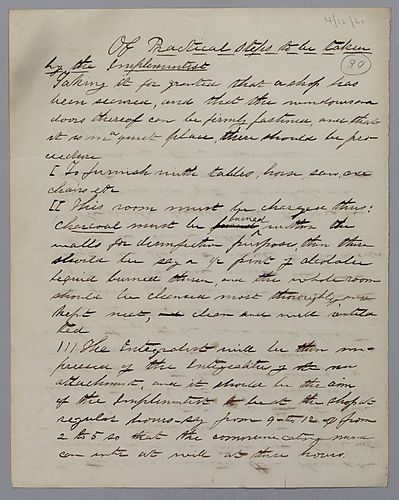 4/12/61
90
Of Practical Steps to be taken
by the Implementist
Taking it for granted that a shop has
been secured, and that the windows and
doors thereof can be firmly fastened, and that
it is in a quiet place, there should be pro-
cedure
I To furnish with tables, saw, axe
chairs &c
II This room must be charged thus:
Charcoal must be burned within the
walls for disinfective purposes, then there
should be say a ½ pint of alcoholic
liquid burned therein, and the whole room
should be cleansed most thoroughly, and
kept neat, clean and well ventila
ted
III The Integralist will be then im-
pressed of the Integrality of the
attachment, and it should be the aim
of the Implementist to be at the shop at
regular hours say from 9 to 12 & from
2 to 5 so that the communicating
can enter at will at these hours.